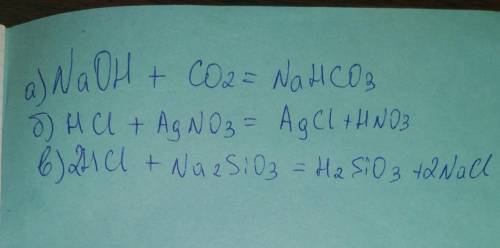 а) NaOH + CO2 = NaHCO3
б) HCl + AgNO3 = AgCl + HNO3
в) 2HCl + Na2SiO3 = H2SiO3 + 2NaCl